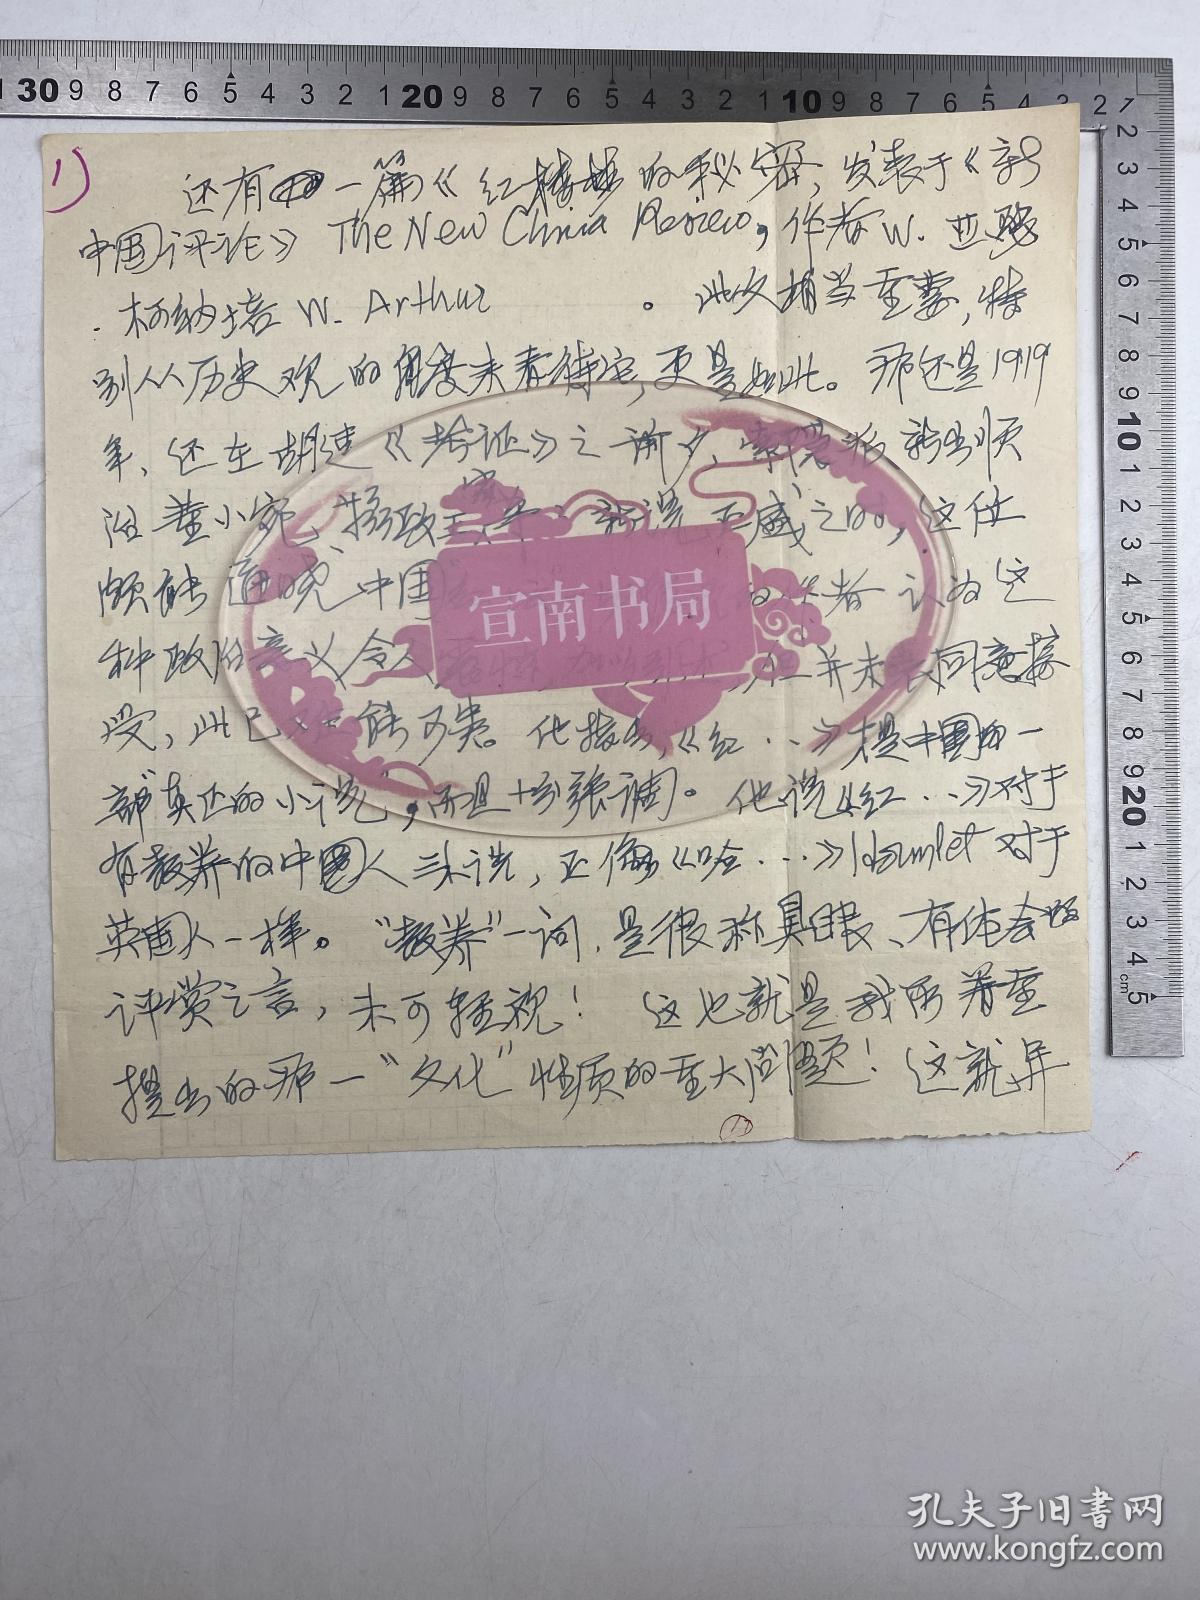 1)
还有一篇《红楼梦的秘密，发表于《新
中国评论》 The New China Review，作者 W. 亚瑟
. 柯纳培 W. Arthur 。此文相当重要，特
别从历史观的角度来看待它，更是如此。那还是1919
年，还在胡适《考证》之前夕，索隐派
治董小宛、之时，这位
颇能通晓中国 作者认为这
种政治意义令人 并未表同意接
受，此已 能可贵。他指出，《红...》是中国的一
部“真正的小说”，而且十分强调。他说《红...》对于
有教养的中国人来说，正像《哈...》Hamlet 对于
英国人一样。“教养”一词，是很称具眼、有体会的
评赏之言，未可轻视！ 这也就是我所着重
提出的那一“文化”性质的重大问题！这就异
宣南书局
孔夫子旧书网
www.kongfz.com
30 9 8 7 6 5 4 3 2 1 20 9 8 7 6 5 4 3 2 1 10 9 8 7 6 5 4 3 2 1
2 3 4 5 6 7 8 9 10 1 2 3 4 5 6 7 8 9 20 1 2 3 4 5
cm